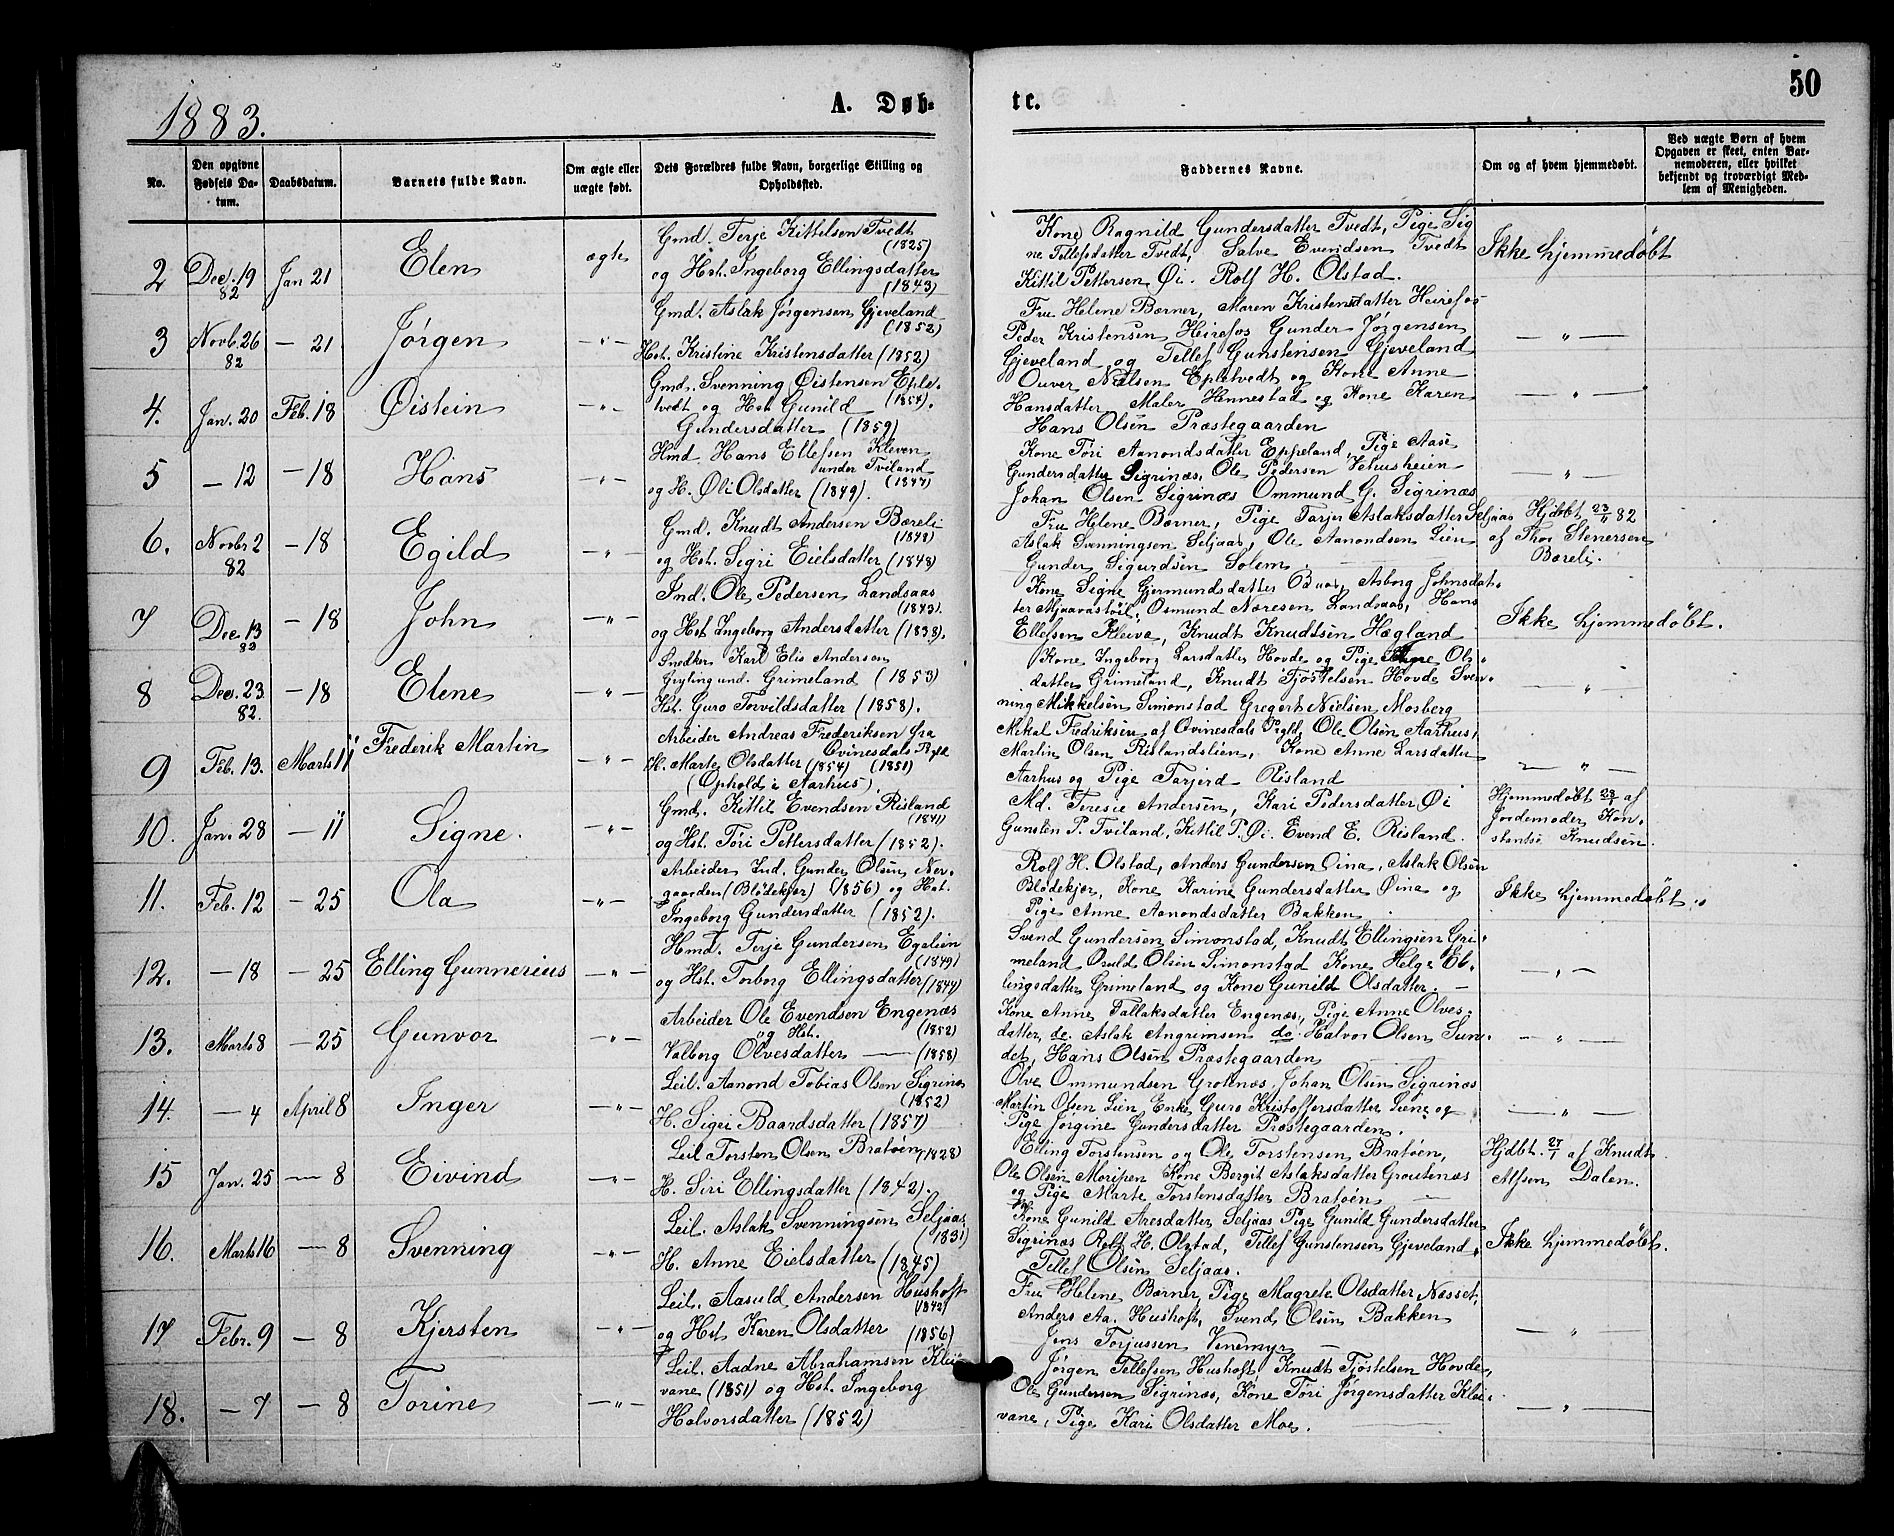 1883.
A. Døb-
te.
50
No.
Den opgivne Fødsels Da-tum.
Daabsdatum.
Barnets fulde Navn.
Om ægte eller uægte født.
Dets Forældres fulde Navn, borgerlige Stilling og Opholdssted.
Faddernes Navne.
Om og af hvem hjemmedøbt.
Ved uægte Børn af hvem Opgaven er skeet, enten Bar-nemoderen, eller hvilket bekjendt og troværdigt Med-lem af Menigheden.
2 Dec. 19 82 Jan 21 Elen ægte
Gmd. Terje Kittelsen Tvedt (1825)
og Hst. Ingeborg Ellingsdatter (1843)
Kone Ragnild Gundersdatter Tvedt, Pige Sig
ne Tellefsdatter Tvedt, Salve Evendsen Tvedt
Kittil Pettersen Øi. Rolf H. Olstad.
Ikke hjemmedøbt
3 Novb. 26 82 — 21 Jørgen — " —
Gmd. Aslak Jørgensen Gjeveland (1852)
Hst. Kristine Kristensdatter (1852)
Fru Helene Børner, Maren Kristensdatter Heirefos
Peder Kristensen Heirefos Gunder Jørgensen
Gjeveland og Tellef Gunstensen Gjeveland
— " —
4. Jan. 20 Feb. 18 Øistein — " —
Gmd. Svenning Øistensen Eple-
tvedt og Hst. Gunild (1854).
Gundersdatter (1859)
Ouver Nilsen Epletvedt og Kone Anne
Hansdatter, Maler Hennestad og Kone Karen
Hans Olsen Præstegaarden
— " —
5 — 12 — 18 Hans — " —
Hmd Hans Ellefsen Kleven
under Tviland
og H. Øli Olsdatter (1849). (1847)
Kone Tøri Aanondsdatter Eppeland, Pige Aase
Gundersdatter Sigrinæs, Ole Pedersen Vehusheien
Johan Olsen Sigrinæs Ommund G. Sigrinæs
— " —
6. Novbr 2 82 — 18 Egild — " —
Gmd. Knudt Andersen Børeli (1848)
og Hst. Sigri Eielsdatter (1848)
Fru Helene Børner, Pige Tarjer Aslaksdatter Seljaas
Aslak Svenningsen Seljaas, Ole Aanondsen Lien
Gunder Sigurdsen Solem.
Hjdøbt 23/11 82
af Thor Stenersen
Børeli.
7 Dec. 13 82 — 18 John — " —
Ind. Ole Pedersen Landsaas (1843).
og Hst Ingeborg Andersdatter (1838).
Kone Signe Gjermundsdatter Buas, Asborg Johnsdat-
ter Mjaavastöil, Osmund Næresen Landsaas, Hans
Ellefsen Kleive, Knudt Knudtsen Hægland
Ikke hjemmedøbt.
8 Dec. 23 82. — 18 Elene — " —
Snedker Karl Elis Andersen
Gryting und. Grimeland (1853)
Hst. Guro Torvildsdatter (1858).
Kone Ingeborg Larsdatter Hovde og Pige Signe Ols-
datter Grimeland, Knudt Tjøstelsen Hovde Sven-
ning Mikkelsen Simonstad Gregert Nielsen Mosberg
— " —
9 Feb. 13. Marts 11 Frederik Martin — " —
Arbeider Andreas Frederiksen fra
Qvinesdals Pgtd
H. Marte Olsdatter (1854) (1851)
(Ophold i Aarhus)
Mikal Fedriksen af Qvinesdals Pgtd, Ole Olsen Aarhus,
Martin Olsen Rislandslien, Kone Anne Larsdatter
Aarhus og Pige Tarjerd Risland
— " —
10. Jan. 28 — 11 Signe. — " —
Gmd. Kittil Evendsen Risland (1841)
og Hst. Tøri Pettersdatter (1852).
Md. Teresie Andersen, Kari Pedersdatter Øi
Gunsten P. Tviland, Kittil P. Øi. Evend E. Risland.
Hjemmedøbt 28/1 af
Jordemoder Kon-
stantse Knudsen.
11. Feb. 12 — 25 Ola — " —
Arbeider Ind. Gunder Olsen Ner-
gaarden (Blødekjær) (1856) og Hst.
Ingeborg Gundersdatter (1852).
Rolf H. Olstad, Anders Gundersen Øina, Aslak Olsen
Blødekjær, Kone Karine Gundersdatter Øina og
Pige Anne Aanondsdatter Bakken
Ikke hjemmedøbt.
12. — 18 — 25 Elling Gunnerius — " —
Hmd. Terje Gundersen Egelien (1849)
og Hst. Torborg Ellingsdatter (1844)
Svend Gundersen Simonstad, Knudt Ellingsen Gri-
meland Osuld Olsen Simonstad Kone Helge El-
lingsdatter Grimeland og Kone Gunild Olsdatter. —
— " —
13. Marts 8 — 25 Gunvor — " —
Arbeider Ole Evendsen Engenæs
og Hst. (1852)
Valborg Olvesdatter — (1858)
Kone Anne Tallaksdatter Engenæs, Pige Anne Olves-
datter do. Aslak Angrimsen do. Halvor Olsen Sun-
det, Hans Olsen Præstegaarden
— " —
14. — 4 April 8 Inger — " —
Leil. Aanond Tobias Olsen Sigrinæs (1852)
H. Sigri Baardsdatter (1857)
Olve Ommundsen Grotnæs, Johan Olsen Sigrinæs
Martin Olsen Lien Enke Guro Kristoffersdatter Liene og
Pige Jørgine Gundersdatter Præstegaarden.
— " —
15 Jan. 25 — 8 Eivind — " —
Leil Torsten Olsen Bratøen (1828)
H. Siri Ellingsdatter (1842).
Elling Torstensen og Ole Torstensen Bratøen,
Ole Olsen Moripen Kone Bergit Aslaksdatter Groutenæs
og Pige Marte Torstensdatter Bratøen
Hjdbt. 27/1 af Knudt
Alfsen Dalen.
16. Marts 16 — 8 Svenning — " —
Leil. Aslak Svenningsen Seljaas (1831)
H. Anne Eielsdatter (1845)
Kone Gunild Aresdatter Seljaas Pige Gunild Gundersdatter
Sigrinæs Rolf H. Olstad, Tellef Gunstensen Gjeveland,
Tellef Olsen Seljaas.
Ikke hjemmedøbt.
17 Febr. 9 — 8 Kjersten — " —
Leil. Aasuld Andersen Hushoft (1842)
og Hst Karen Olsdatter (1856)
Fru Helene Børner, Pige Magrete Olsdatter Næsset,
Anders Aa. Hushoft, Svend Olsen Bakken
Jens Torjussen Venemyr —
— " —
18. — 7 — 8 Torine — " —
Leil. Aadne Abrahamsen Klei-
vane (1851) og Hst. Ingeborg
Halvorsdatter (1852)
Jørgen Tellefsen Hushoft, Knudt Tjøstelsen Hovde,
Ole Gundersen Sigrinæs, Kone Tøri Jørgensdatter Klei-
vane, Pige Kari Olsdatter Moe.
— " —